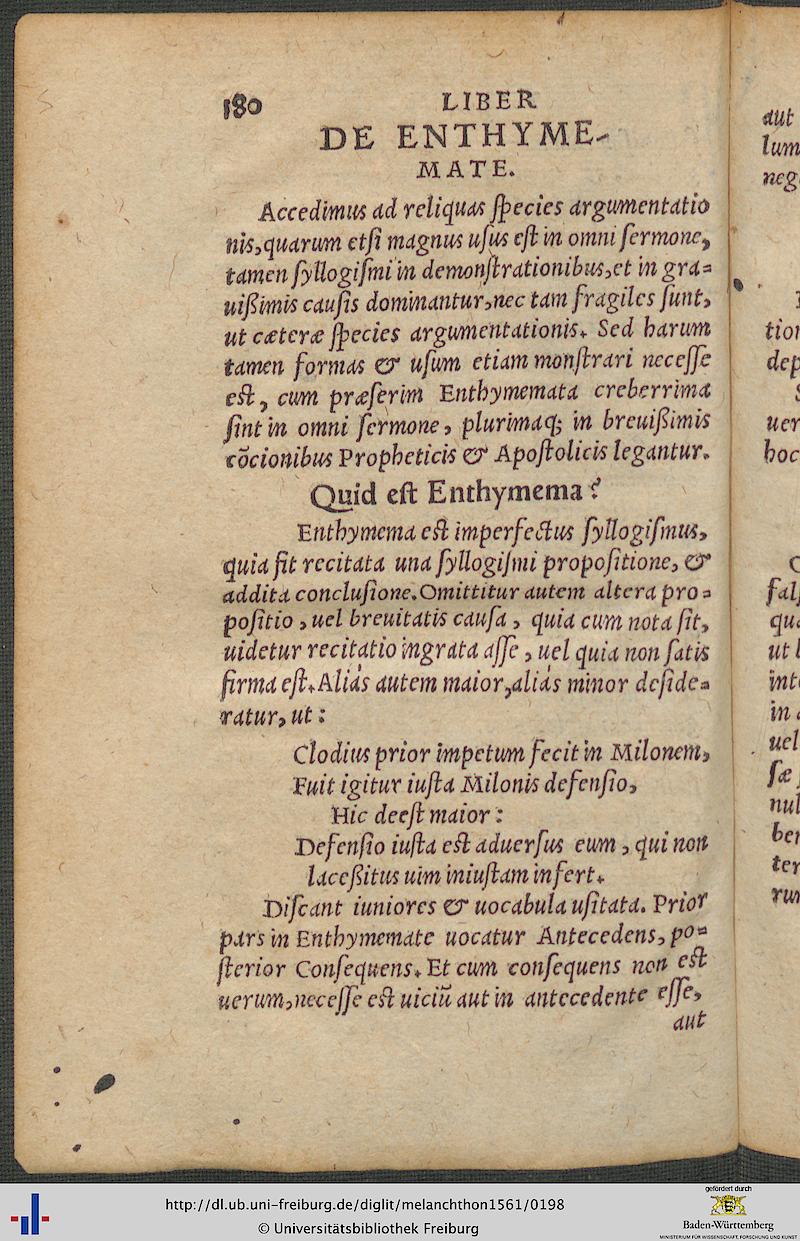 180 LIBER
DE ENTHYME-
MATE.
Accedimus ad reliquas ſpecies argumentatio
nis, quarum etſi magnus uſus eſt in omni ſermone,
tamen ſyllogiſmi in demonſtrationibus, et in gra=
uißimis cauſis dominantur, nec tam fragiles ſunt,
ut cæteræ ſpecies argumentationis. Sed harum
tamen formas & uſum etiam monſtrari neceſſe
eſt, cum præſerim Enthymemata creberrima
ſint in omni ſermone, plurimaq; in breuißimis
cõcionibus Propheticis & Apoſtolicis legantur.
Quid eſt Enthymema?
Enthymema eſt imperfectus ſyllogiſmus,
quia fit recitata una ſyllogiſmi propoſitione, &
addita concluſione. Omittitur autem altera pro=
poſitio, uel breuitatis cauſa, quia cum nota ſit,
uidetur recitatio ingrata aſſe, uel quia non ſatis
firma eſt. Aliàs autem maior, aliàs minor deſide=
ratur, ut:
Clodius prior impetum fecit in Milonem,
Fuit igitur iuſta Milonis defenſio,
Hic deeſt maior:
Defenſio iuſta eſt aduerſus eum, qui non
laceßitus uim iniuſtam infert.
Diſcant iuniores & uocabula uſitata. Prior
pars in Enthymemate uocatur Antecedens, po=
ſterior Conſequens. Et cum conſequens non eſt
uerum, neceſſe eſt uiciũ aut in antecedente eſſe,
aut
aut
lum
neg
tion
dep
uer
hoc
falſ
qua
ut
int
in
uel
ſæ
nul
ber
ter
rum
http://dl.ub.uni-freiburg.de/diglit/melanchthon1561/0198
© Universitätsbibliothek Freiburg
gefördert durch
Baden-Württemberg
MINISTERIUM FÜR WISSENSCHAFT, FORSCHUNG UND KUNST